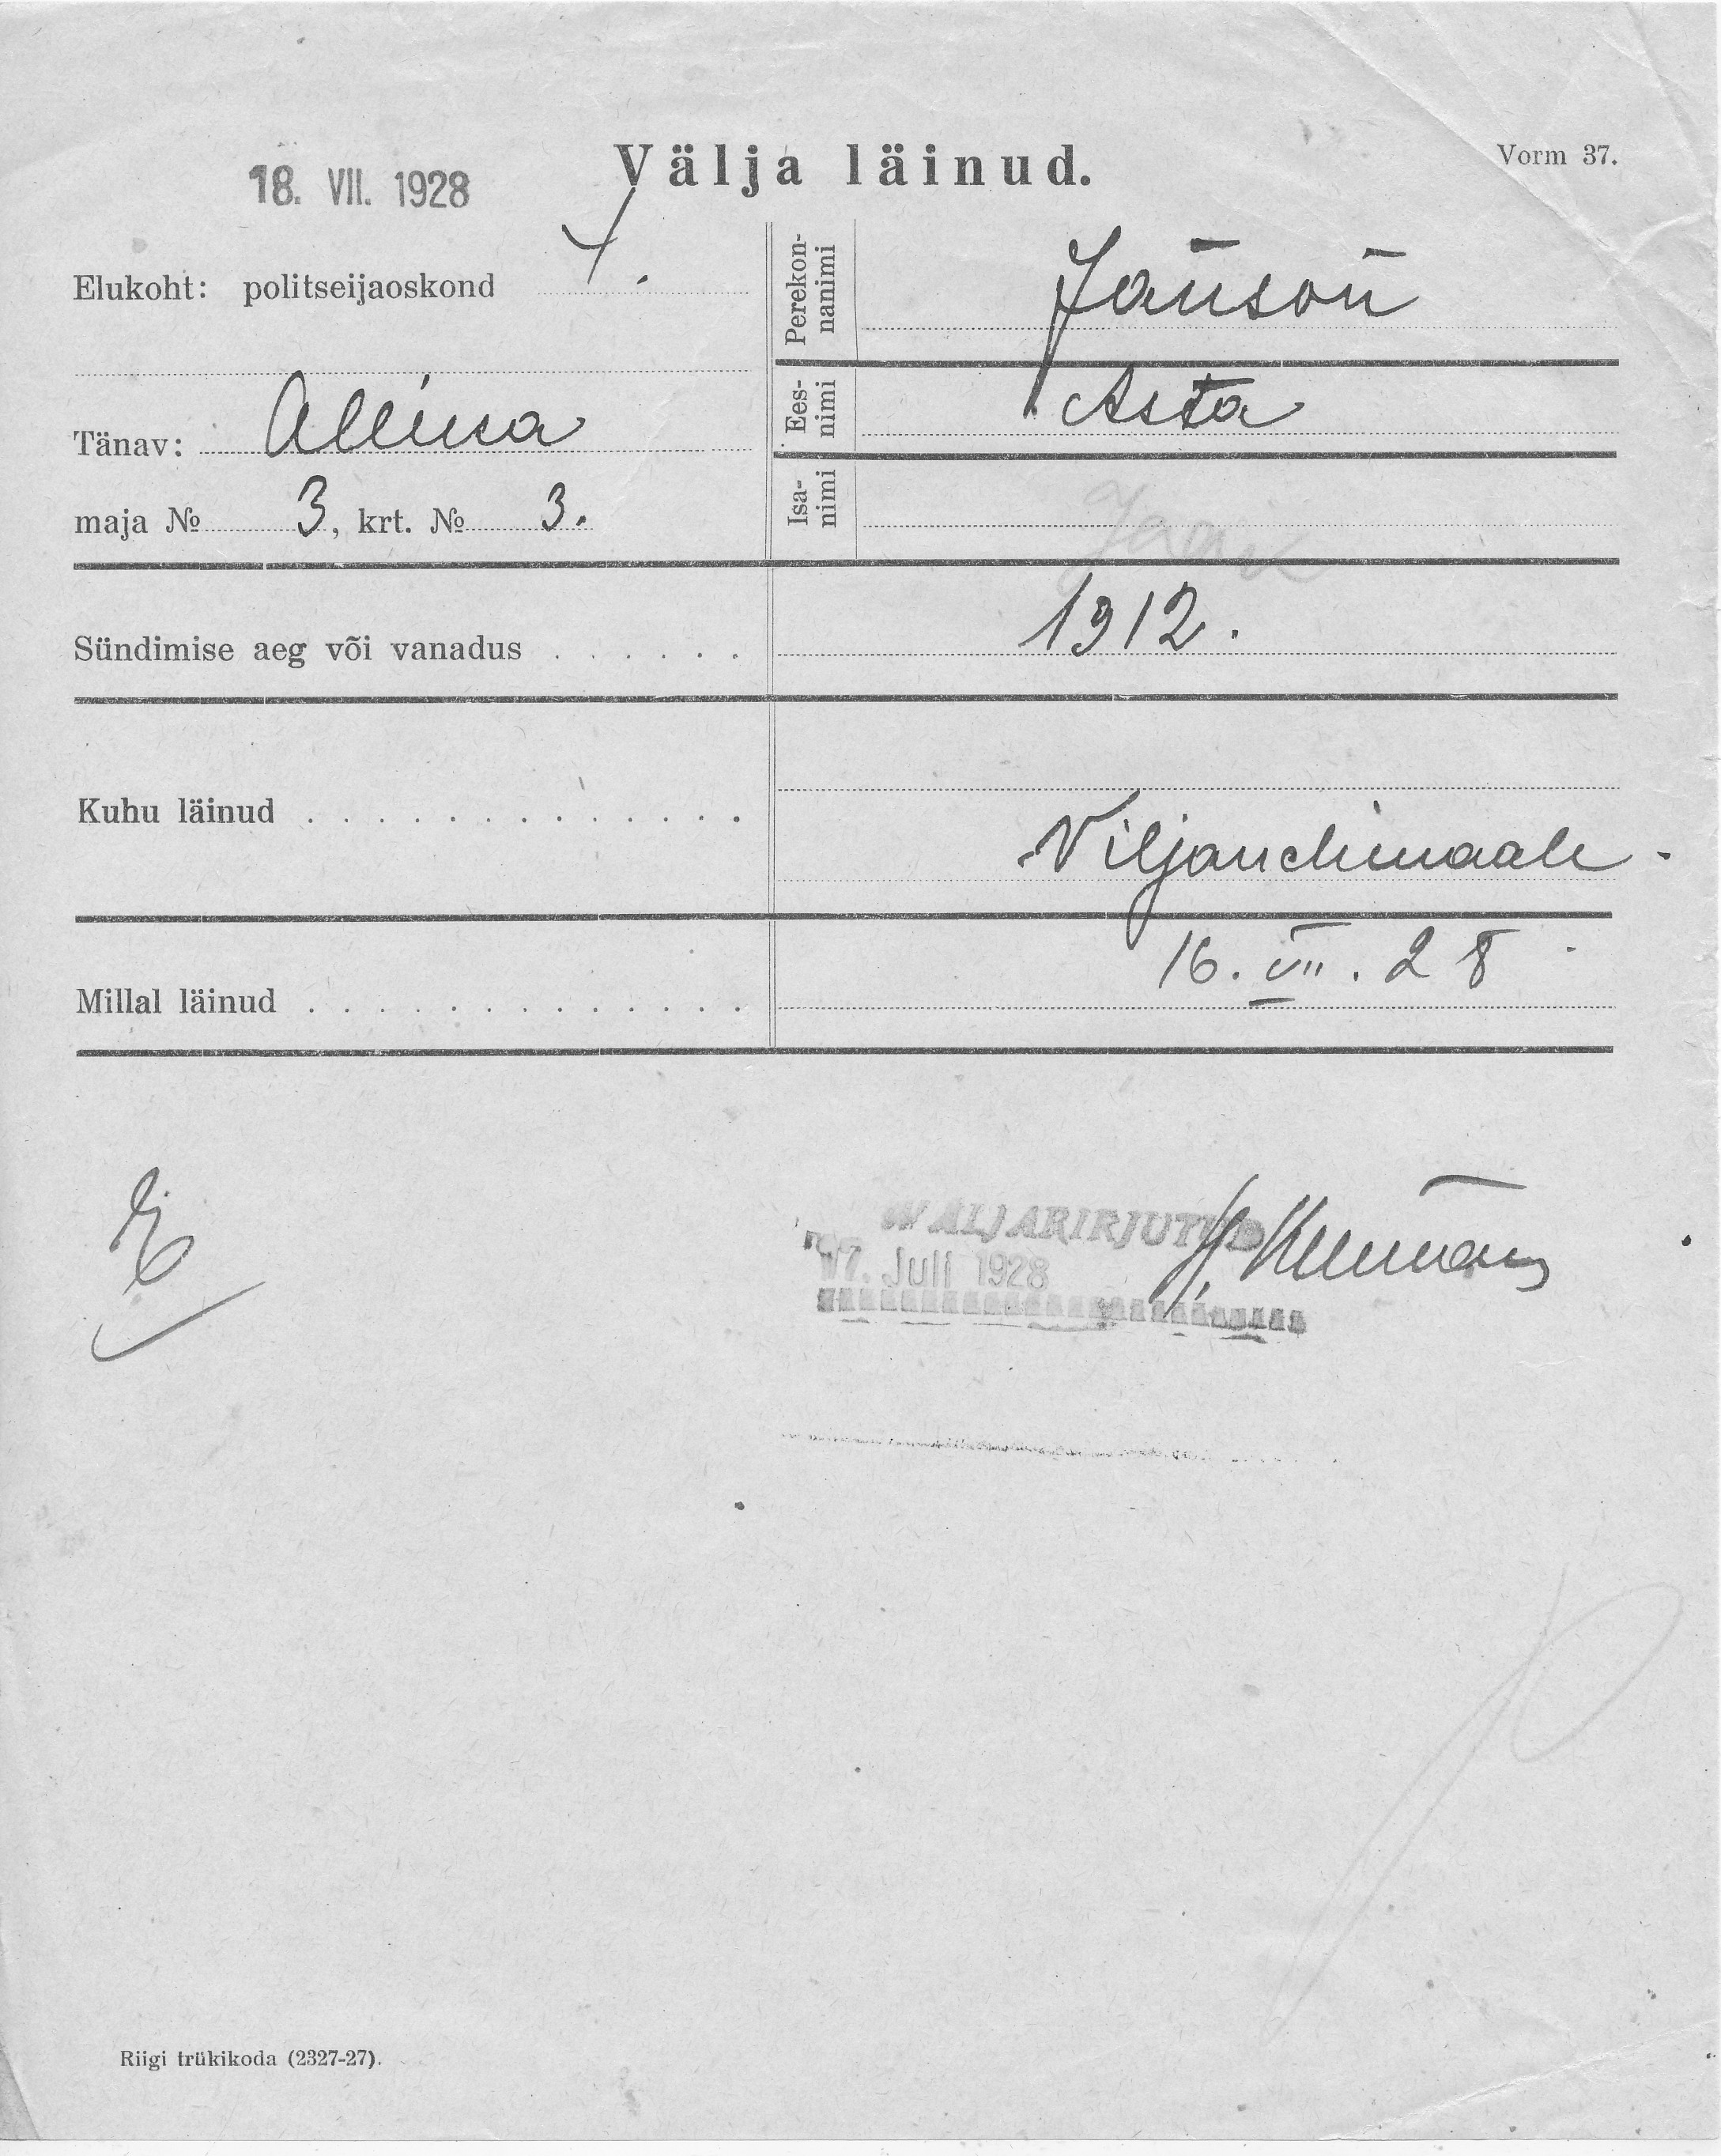 Välja läinud.
Vorm 37.
18. VII. 1928
Elukoht: politseijaoskond 4.
Tänav:
maja № 3, krt. № 3.
Perekon-
nanimi
Janson
Ees-
nimi
Asta
Isa-
nimi
Jaan
Sündimise aeg või vanadus . . . . . . 1912.
Kuhu läinud . . . . . . . . . . . . . Viljandimaale.
Millal läinud . . . . . . . . . . . . . 16. VII. 28
WALJARIRJUTUD
17. Juli 1928
Riigi trükikoda (2327-27).